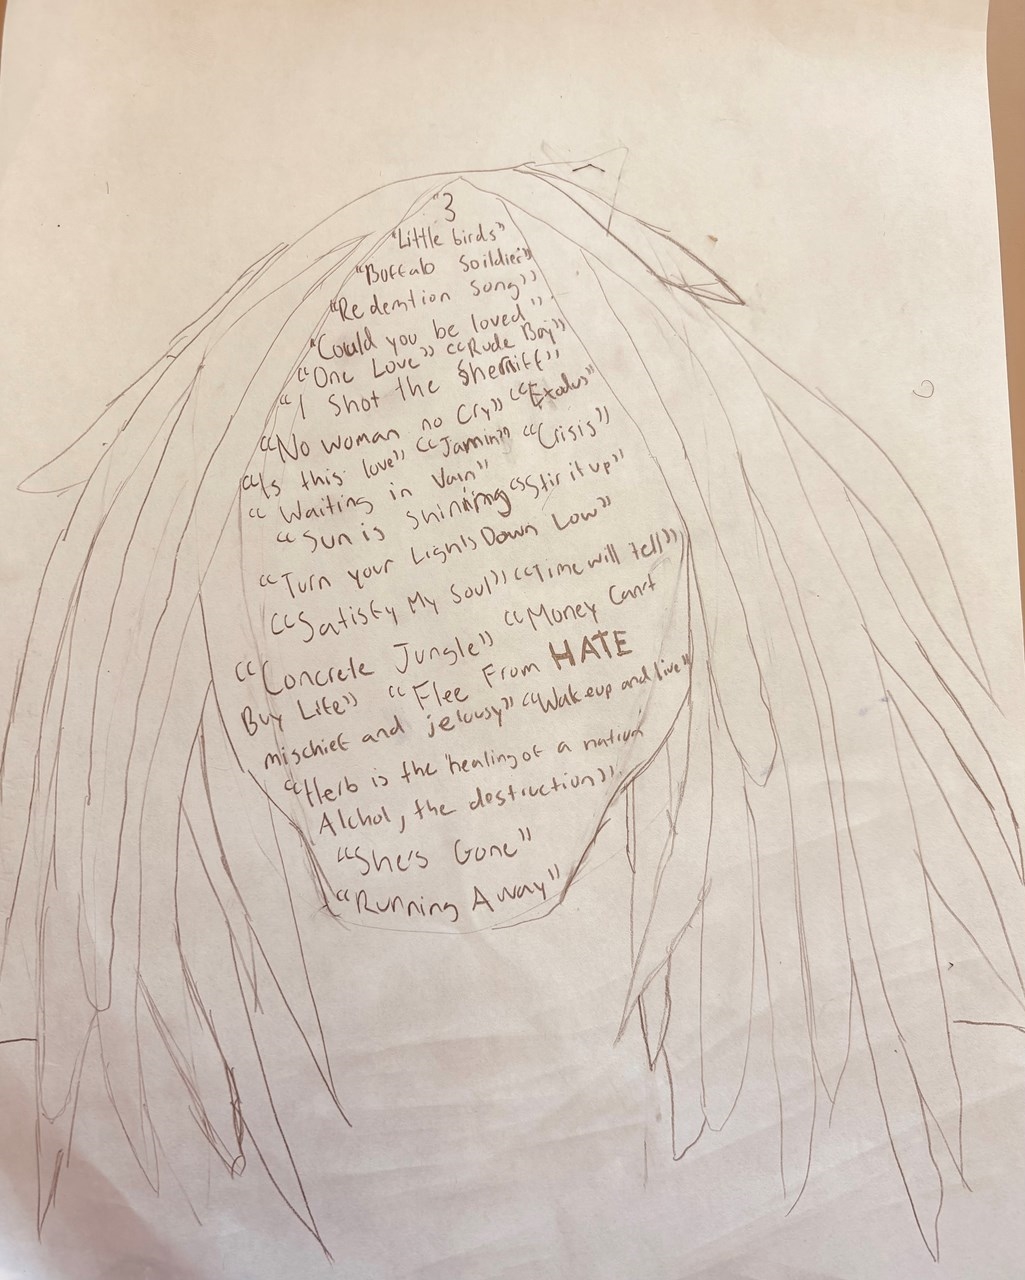 "3
"Little birds"
"Buffalo Soildier"
"Redemtion Song"
"Could you be loved"
"One Love" "Rude Boy"
"I Shot the Sherriff"
"No woman no Cry" "Exodus"
"Is this love" "Jamin" "Crisis"
"Waiting in Vain"
"Sun is Shinning "Stir it up"
"Turn your Lights Down Low"
"Satisfy My Soul" "Time will tell"
"Concrete Jungle" "Money Can't
Buy Life" "Flee From HATE
mischief and jelousy" "Wake up and live"
"Herb is the healing of a nation
Alchol, the destruction"
"She's Gone"
"Running Away"